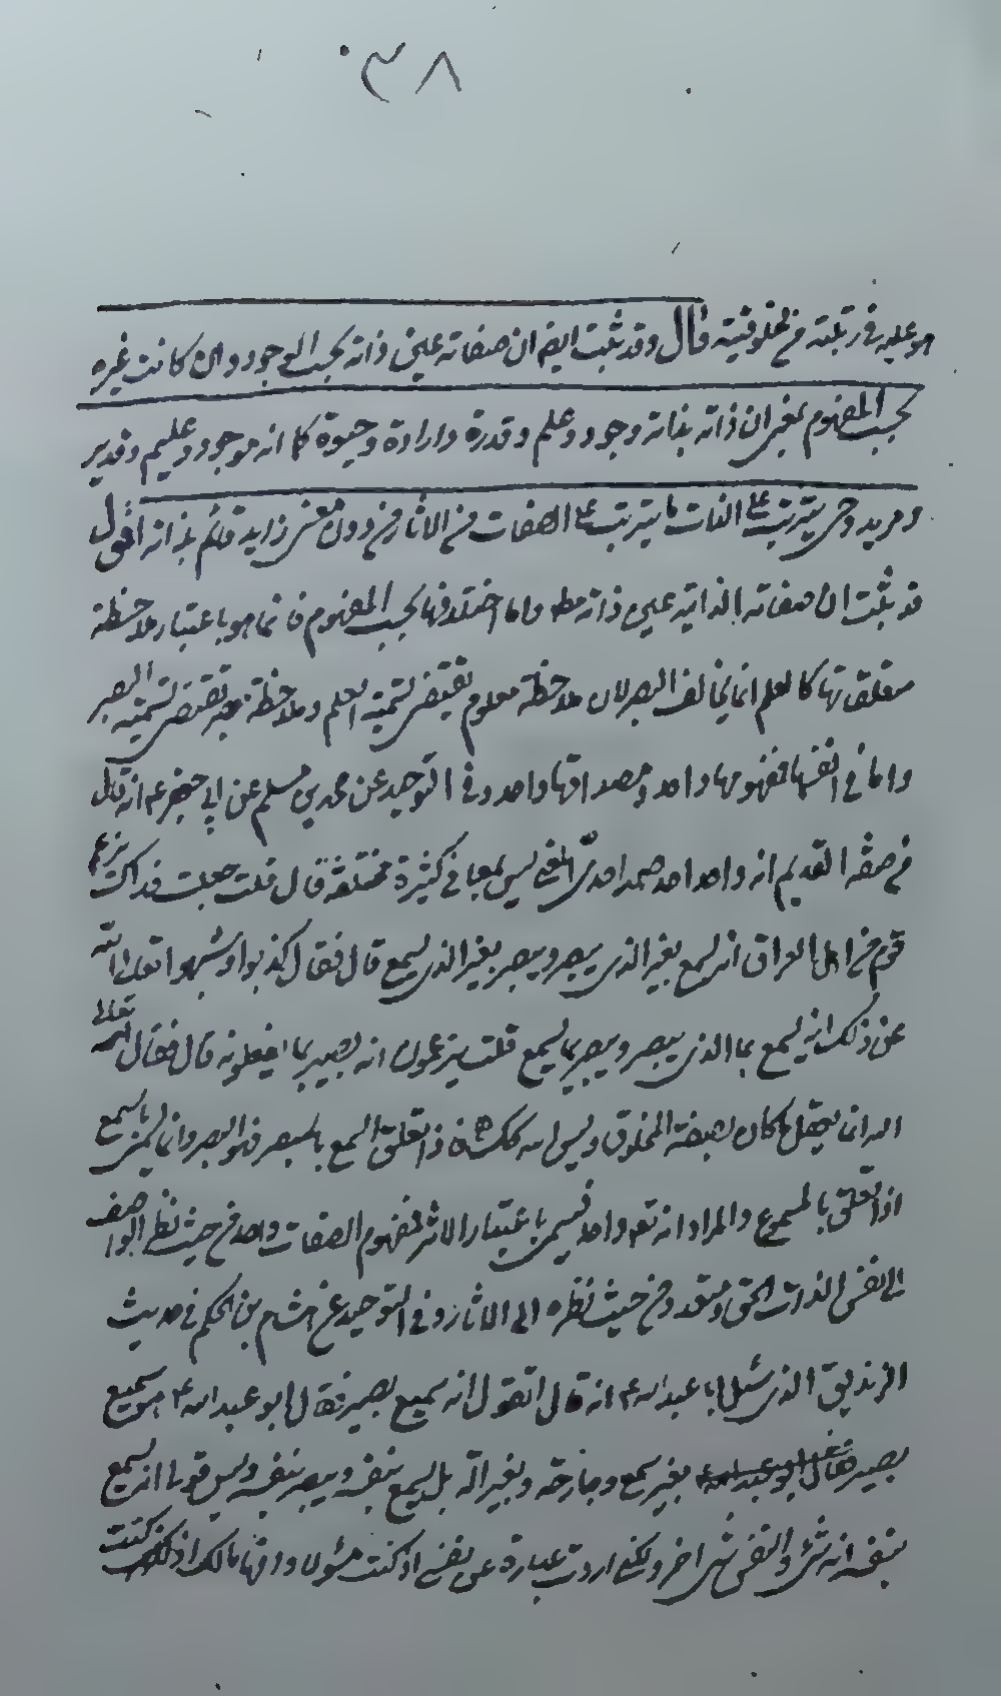 ٣٨٠
هو عليه في رتبته من مخلوقيته قال وقد ثبت ايضا ان صفاته عين ذاته بحسب الوجود وان كانت غيره
بحسب المفهوم بمعنى ان ذاته بذاته وجود وعلم وقدرة وارادة وحيوة كما انه موجود وعليم وقدير
ومريد وحي يترتب على الذات ما يترتب على الصفات من الاثار من دون معنى زايد قائم بذاته اقول
قد ثبت ان صفاته الذاتية عين ذاته مط واما اختلافها بحسب المفهوم فانما هو باعتبار ملاحظة
متعلقاتها كالعلم انما يخالف البصر لان ملاحظة معلوم تقتضي تسمية العلم وملاحظة مبصر تقتضي تسمية البصر
واما في انفسها فمفهومها واحد ومصداقها واحد وفي التوحيد عن محمد بن مسلم عن ابي جعفر ع انه قال
في صفة القديم انه واحد احد صمد احدي المعنى ليس بمعاني كثيرة مختلفة قال قلت جعلت فداك يزعم
قوم من اهل العراق انه يسمع بغير الذي يبصر ويبصر بغير الذي يسمع قال فقال كذبوا وشبهوا تعالى الله
عن ذلك انه يسمع بما الذي يبصر ويبصر بما يسمع قلت يزعمون انه بصير بما يفعلونه قال فقال تعالى
الله انما يعقل ما كان بصفة المخلوق وليس الله كك فاذا تعلق السمع بالمبصر فهو البصر وانما يسمى بالسمع
اذا تعلق بالمسموع والمراد انه تع واحد فيسمى باعتبار الاثر فمفهوم الصفات واحد من حيث نظر الواصف
الى نفس الذات الحق ومتعدد من حيث نظره الى الاثار وفي التوحيد عن هشام بن الحكم في حديث
الزنديق الذي سئل ابا عبد الله ع انه قال اتقول انه سميع بصير فقال ابو عبد الله ع هو سميع
بصير فقال ابو عبد الله بغير سمع وجارحة وبغير الة بل يسمع بنفسه ويبصر بنفسه وليس قولي انه يسمع
بنفسه انه شئ والنفس شئ اخر ولكني اردت عبارة عن نفسي اذ كنت مسئولا وافهاما لك اذ كنت